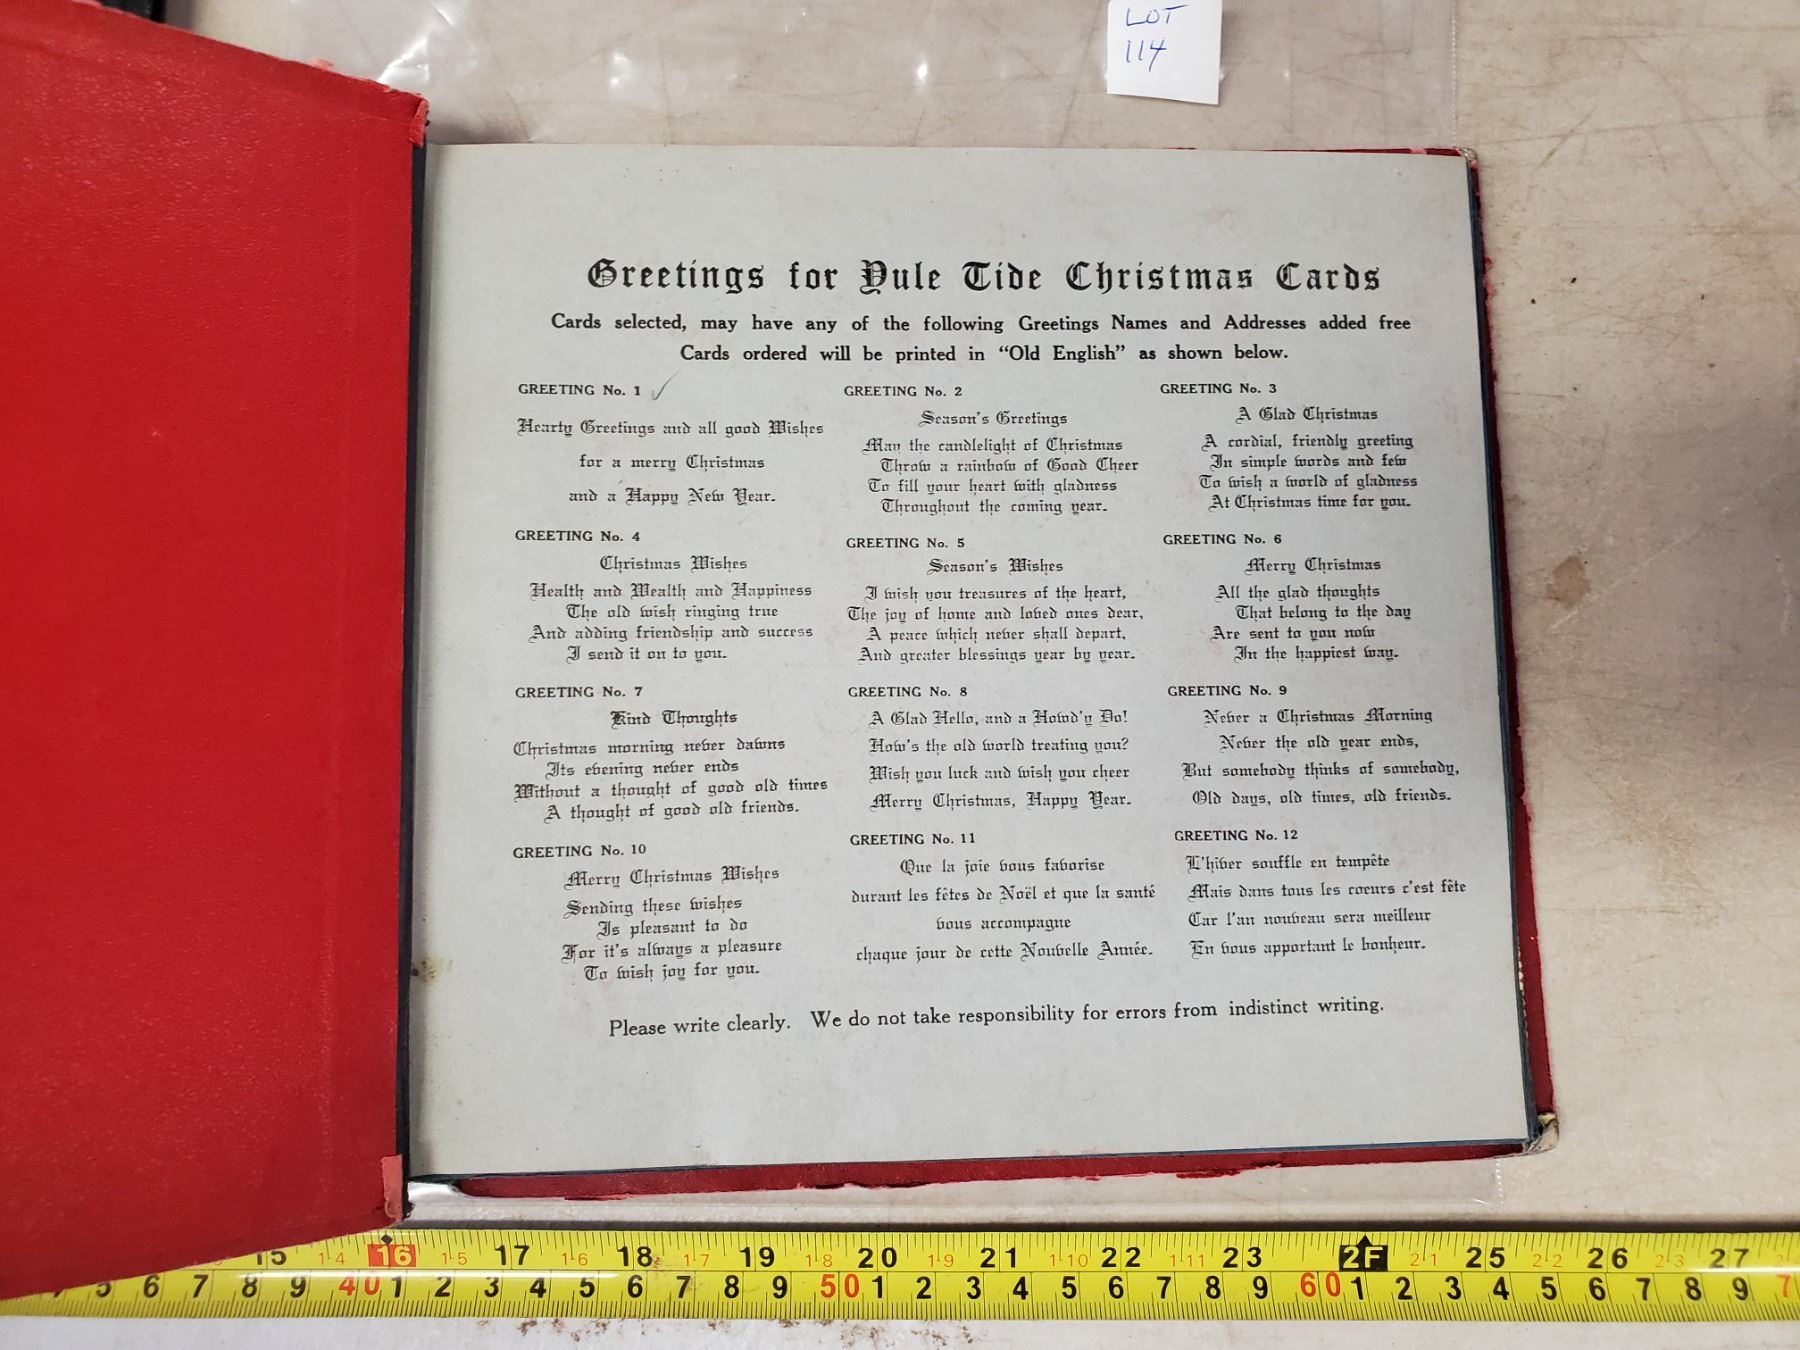 LOT
114
Greetings for Yule Tide Christmas Cards
Cards selected, may have any of the following Greetings Names and Addresses added free
Cards ordered will be printed in “Old English” as shown below.
GREETING No. 1 ✓
Hearty Greetings and all good Wishes
for a merry Christmas
and a Happy New Year.
GREETING No. 2
Season's Greetings
May the candlelight of Christmas
Throw a rainbow of Good Cheer
To fill your heart with gladness
Throughout the coming year.
GREETING No. 3
A Glad Christmas
A cordial, friendly greeting
In simple words and few
To wish a world of gladness
At Christmas time for you.
GREETING No. 4
Christmas Wishes
Health and Wealth and Happiness
The old wish ringing true
And adding friendship and success
I send it on to you.
GREETING No. 5
Season's Wishes
I wish you treasures of the heart,
The joy of home and loved ones dear,
A peace which never shall depart,
And greater blessings year by year.
GREETING No. 6
Merry Christmas
All the glad thoughts
That belong to the day
Are sent to you now
In the happiest way.
GREETING No. 7
Kind Thoughts
Christmas morning never dawns
Its evening never ends
Without a thought of good old times
A thought of good old friends.
GREETING No. 8
A Glad Hello, and a Howd'y Do!
How's the old world treating you?
Wish you luck and wish you cheer
Merry Christmas, Happy Year.
GREETING No. 9
Never a Christmas Morning
Never the old year ends,
But somebody thinks of somebody,
Old days, old times, old friends.
GREETING No. 10
Merry Christmas Wishes
Sending these wishes
Is pleasant to do
For it's always a pleasure
To wish joy for you.
GREETING No. 11
Que la joie vous favorise
durant les fêtes de Noël et que la santé
vous accompagne
chaque jour de cette Nouvelle Année.
GREETING No. 12
L'hiver souffle en tempête
Mais dans tous les coeurs c'est fête
Car l'an nouveau sera meilleur
En vous apportant le bonheur.
Please write clearly. We do not take responsibility for errors from indistinct writing.
15 1-4 16 1-5 17 1-6 18 1-7 19 1-8 20 1-9 21 1-10 22 1-11 23 2F 2-1 25 2-2 26 2-3 27
5 6 7 8 9 40 1 2 3 4 5 6 7 8 9 50 1 2 3 4 5 6 7 8 9 60 1 2 3 4 5 6 7 8 9 7